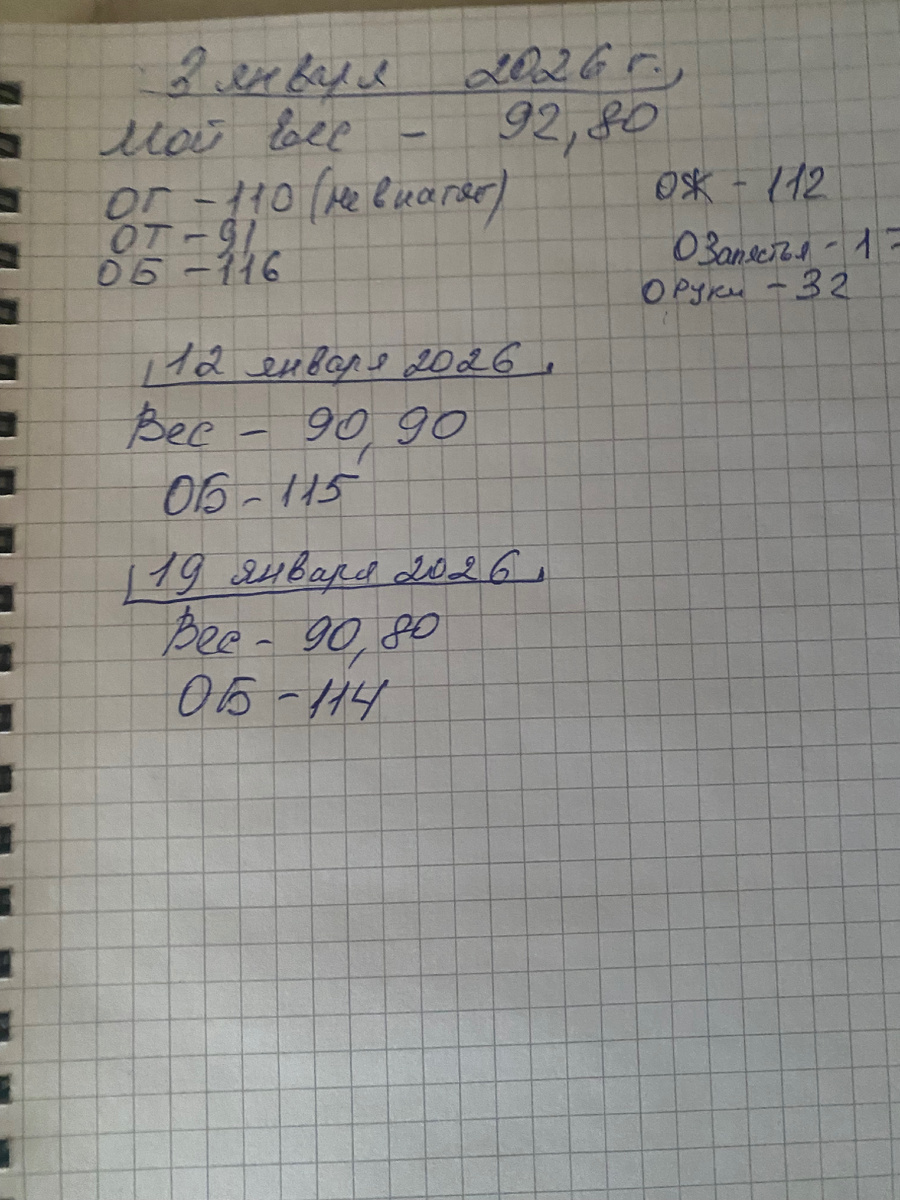 3 января 2026 г.
Мой вес - 92,80
ОГ - 110 (не внатяг)
ОЖ - 112
ОТ - 91
О Запястья - 17
ОБ - 116
О Руки - 32
12 января 2026
Вес - 90,90
ОБ - 115
19 января 2026
Вес - 90,80
ОБ - 114